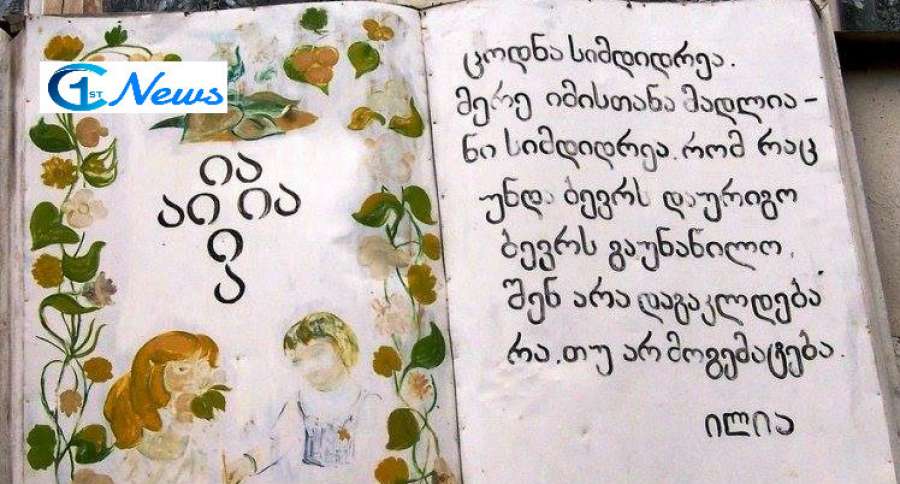 1ST News
ია
აი ია
ი
ა
ცოდნა სიმდიდრეა.
მერე იმისთანა მადლია-
ნი სიმდიდრეა. რომ რაც
უნდა ბევრს დაურიგო
ბევრს გაუნაწილო,
შენ არა დაგაკლდება
რა, თუ არ მოგემატება.
ილია